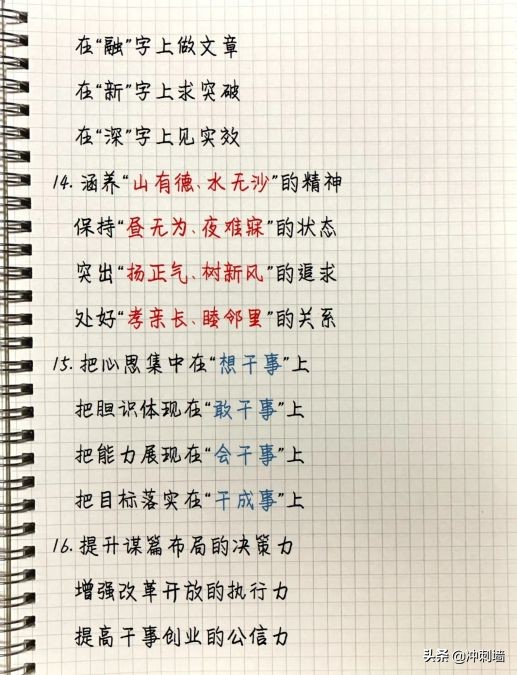 在“融”字上做文章
在“新”字上求突破
在“深”字上见实效
14. 涵养“山有德、水无沙”的精神
保持“昼无为、夜难寐”的状态
突出“扬正气、树新风”的追求
处好“孝亲长、睦邻里”的关系
15. 把心思集中在“想干事”上
把胆识体现在“敢干事”上
把能力展现在“会干事”上
把目标落实在“干成事”上
16. 提升谋篇布局的决策力
增强改革开放的执行力
提高干事创业的公信力
头条 @冲刺墙